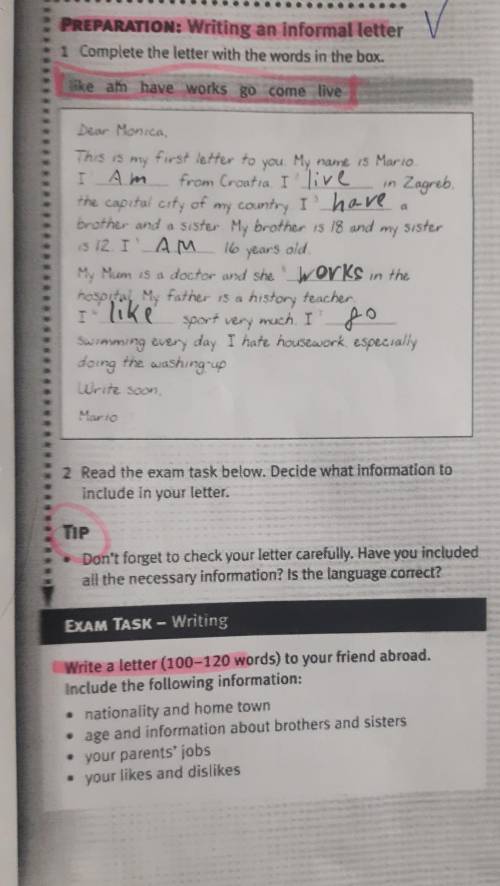 PREPARATION: Writing an informal letter
1 Complete the letter with the words in the box.
like am have works go come live
Dear Monica,
This is my first letter to you. My name is Mario.
I ¹ Am from Croatia. I ² live in Zagreb,
the capital city of my country. I ³ have a
brother and a sister. My brother is 18 and my sister
is 12. I ⁴ AM 16 years old.
My Mum is a doctor and she ⁵ works in the
hospital. My father is a history teacher.
I ⁶ like sport very much. I ⁷ go
swimming every day. I hate housework, especially
doing the washing-up.
Write soon,
Mario
2 Read the exam task below. Decide what information to
include in your letter.
TIP
• Don't forget to check your letter carefully. Have you included
all the necessary information? Is the language correct?
EXAM TASK – Writing
Write a letter (100–120 words) to your friend abroad.
Include the following information:
• nationality and home town
• age and information about brothers and sisters
• your parents' jobs
• your likes and dislikes